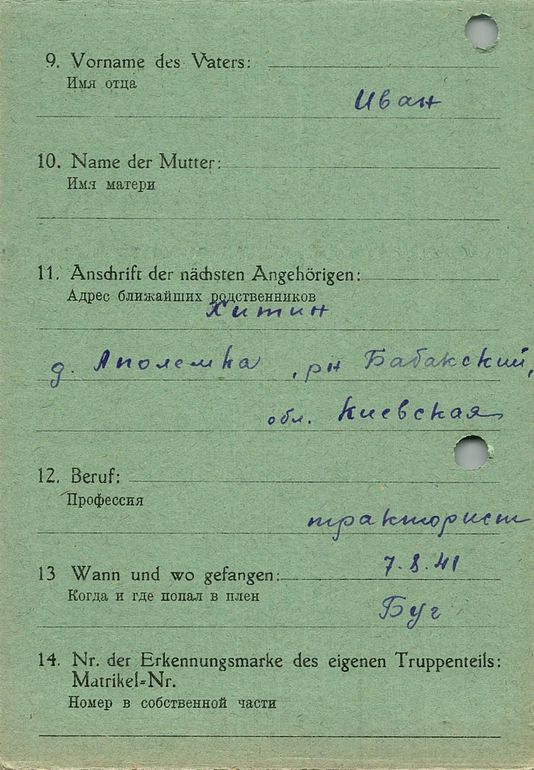 9. Vorname des Vaters:
Имя отца
Иван
10. Name der Mutter:
Имя матери
11. Anschrift der nächsten Angehörigen:
Адрес ближайших родственников
Хитин
д. Аполемка, рн Бабакский,
обл. Киевская
12. Beruf:
Профессия
тракторист
13 Wann und wo gefangen:
7.8.41
Когда и где попал в плен
Буг
14. Nr. der Erkennungsmarke des eigenen Truppenteils:
Matrikel-Nr.
Номер в собственной части